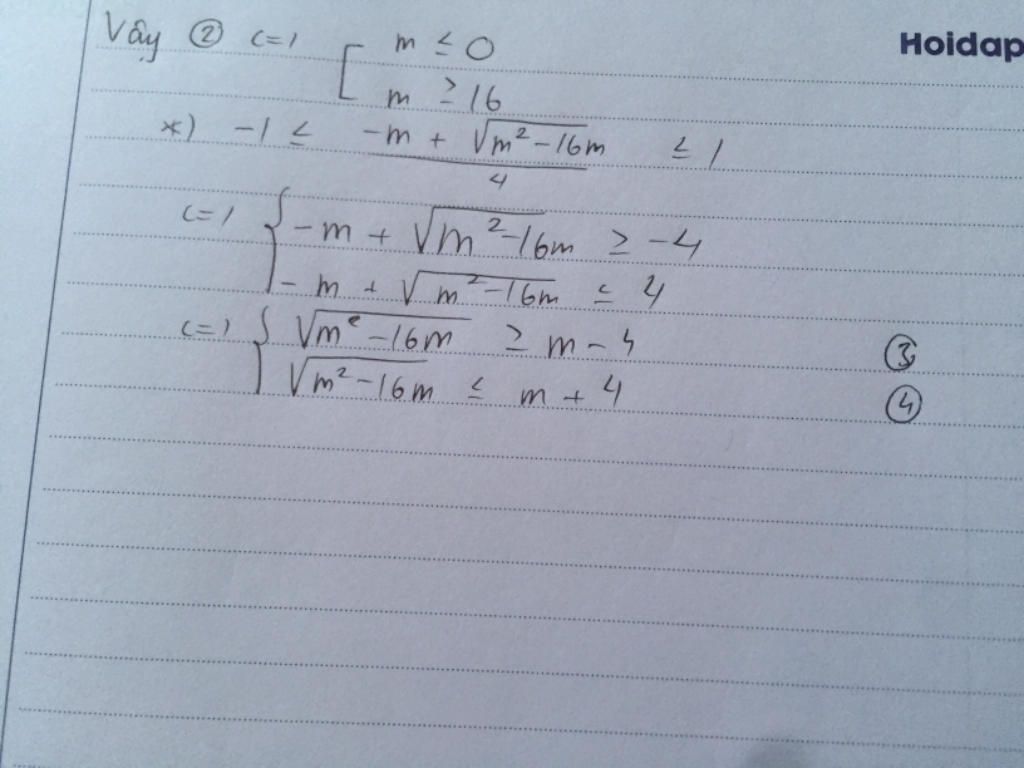 Vậy ② <=> [ m ≤ 0
Hoidap
m ≥ 16
*) -1 ≤ (-m + √(m² - 16m))/4 ≤ 1
<=> { -m + √(m² - 16m) ≥ -4
-m + √(m² - 16m) ≤ 4
<=> { √(m² - 16m) ≥ m - 4 ③
√(m² - 16m) ≤ m + 4 ④